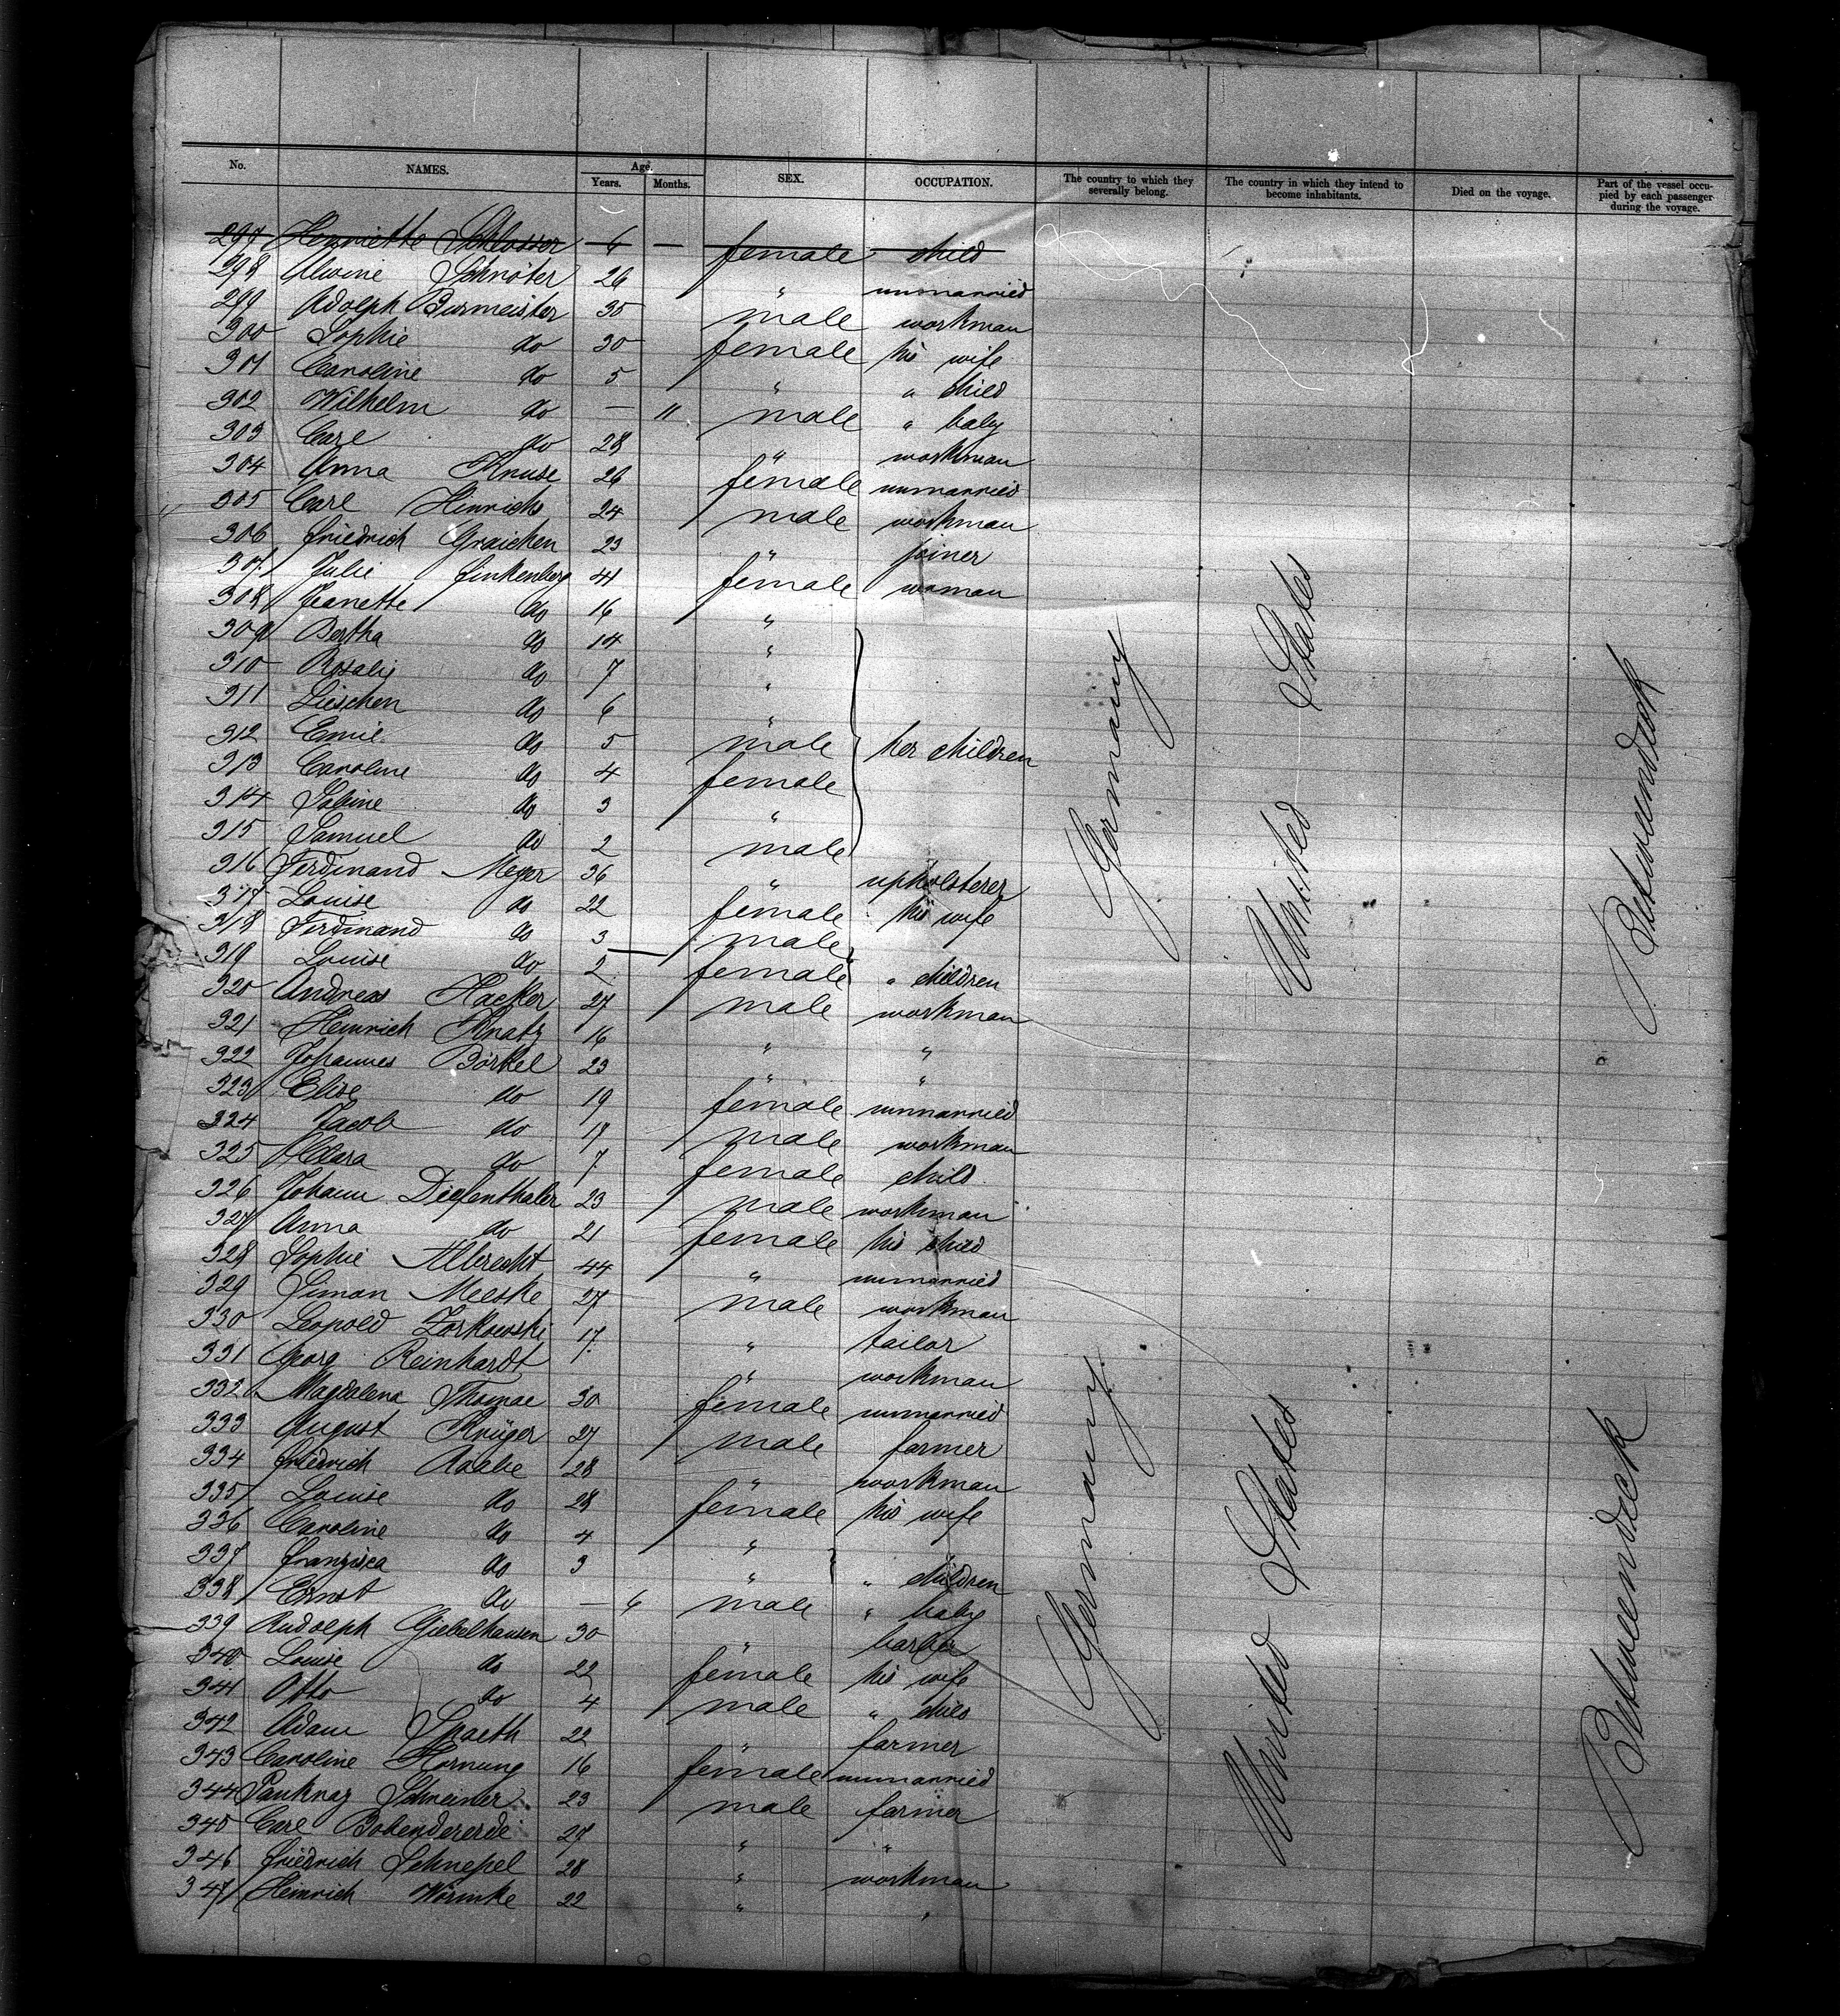 No. NAMES. Age. Years. Months. SEX. OCCUPATION. The country to which they severally belong. The country in which they intend to become inhabitants. Died on the voyage. Part of the vessel occupied by each passenger during the voyage.
297 Henriette Schlosser 6 — female child
298 Alwine Schröter 26 " unmarried
299 Adolph Burmeister 35 male workman
300 Sophie do 30 female his wife
301 Caroline do 5 " " child
302 Wilhelm do — 11 male " baby
303 Carl do 28 " workman
304 Anna Kruse 26 female unmarried
305 Carl Hinrichs 24 male workman
306 Friedrich Graichen 23 " joiner
307 Julie Finkenberg 41 female woman
308 Jeanette do 16 "
309 Bertha do 14 "
310 Rosalie do 7 "
311 Lieschen do 6 "
312 Emil do 5 male her children
313 Caroline do 4 female
314 Sabine do 3 "
315 Samuel do 2 male
316 Ferdinand Meyer 36 " upholsterer
317 Louise do 22 female his wife
318 Ferdinand do 3 male
319 Louise do 2 female " children
320 Andreas Hacker 27 male workman
321 Heinrich Knatz 16 " "
322 Johannes Börkel 23 " "
323 Elise do 19 female unmarried
324 Jacob do 17 male workman
325 Clara do 7 female child
326 Johann Diefenthaler 23 male workman
327 Anna do 21 female his child
328 Sophie Albrecht 44 " unmarried
329 Simon Meeske 27 male workman
330 Leopold Zorkowski 17 " tailor
331 Georg Reinhardt " workman
332 Magdalena Thomae 30 female unmarried
333 August Krüger 27 male farmer
334 Friedrich Raabe 28 " workman
335 Louise do 28 female his wife
336 Caroline do 4 "
337 Franzisca do 3 " " children
338 Ernst do — 6 male " baby
339 Rudolph Giebelhausen 30 " barber
340 Louise do 22 female his wife
341 Otto do 4 male " child
342 Adam Spaeth 22 " farmer
343 Caroline Hornung 16 female unmarried
344 Schreiner 23 male farmer
345 Carl Bohendererde 27 " "
346 Friedrich Schnepel 28 " workman
347 Heinrich Wörmke 22 " "
Germany
United States
Betweendeck
Germany
United States
Betweendeck